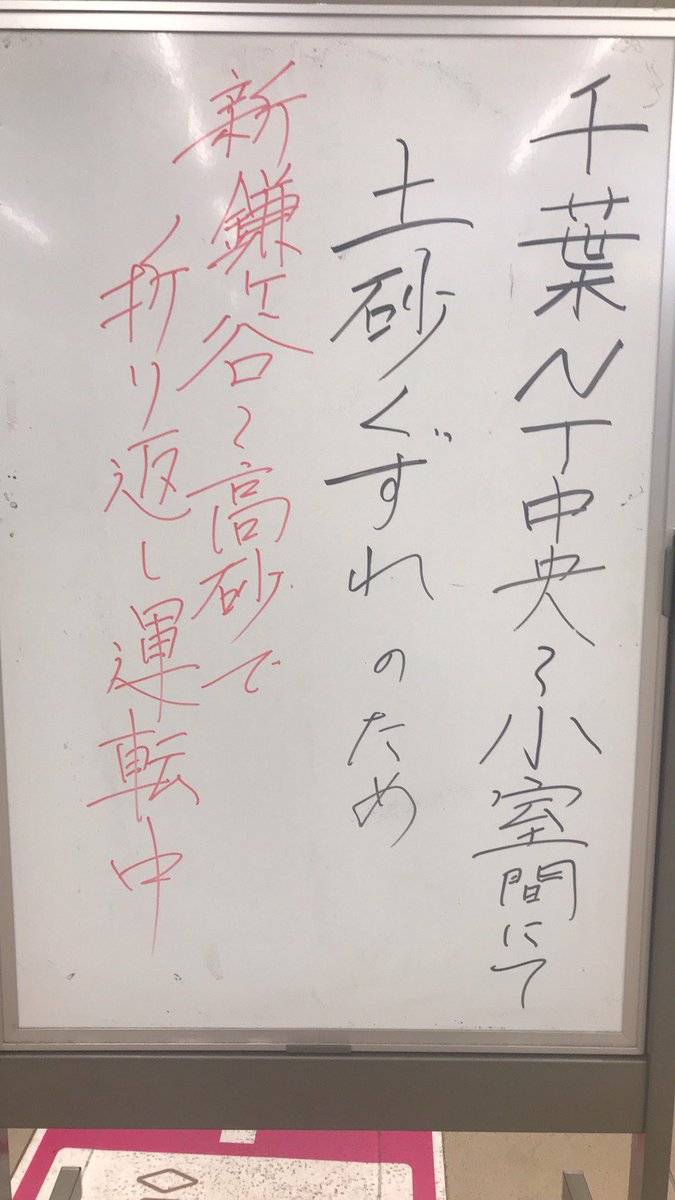 千葉NT中央～小室間にて
土砂ぐずれのため
新鎌ヶ谷～高砂で
折り返し運転中